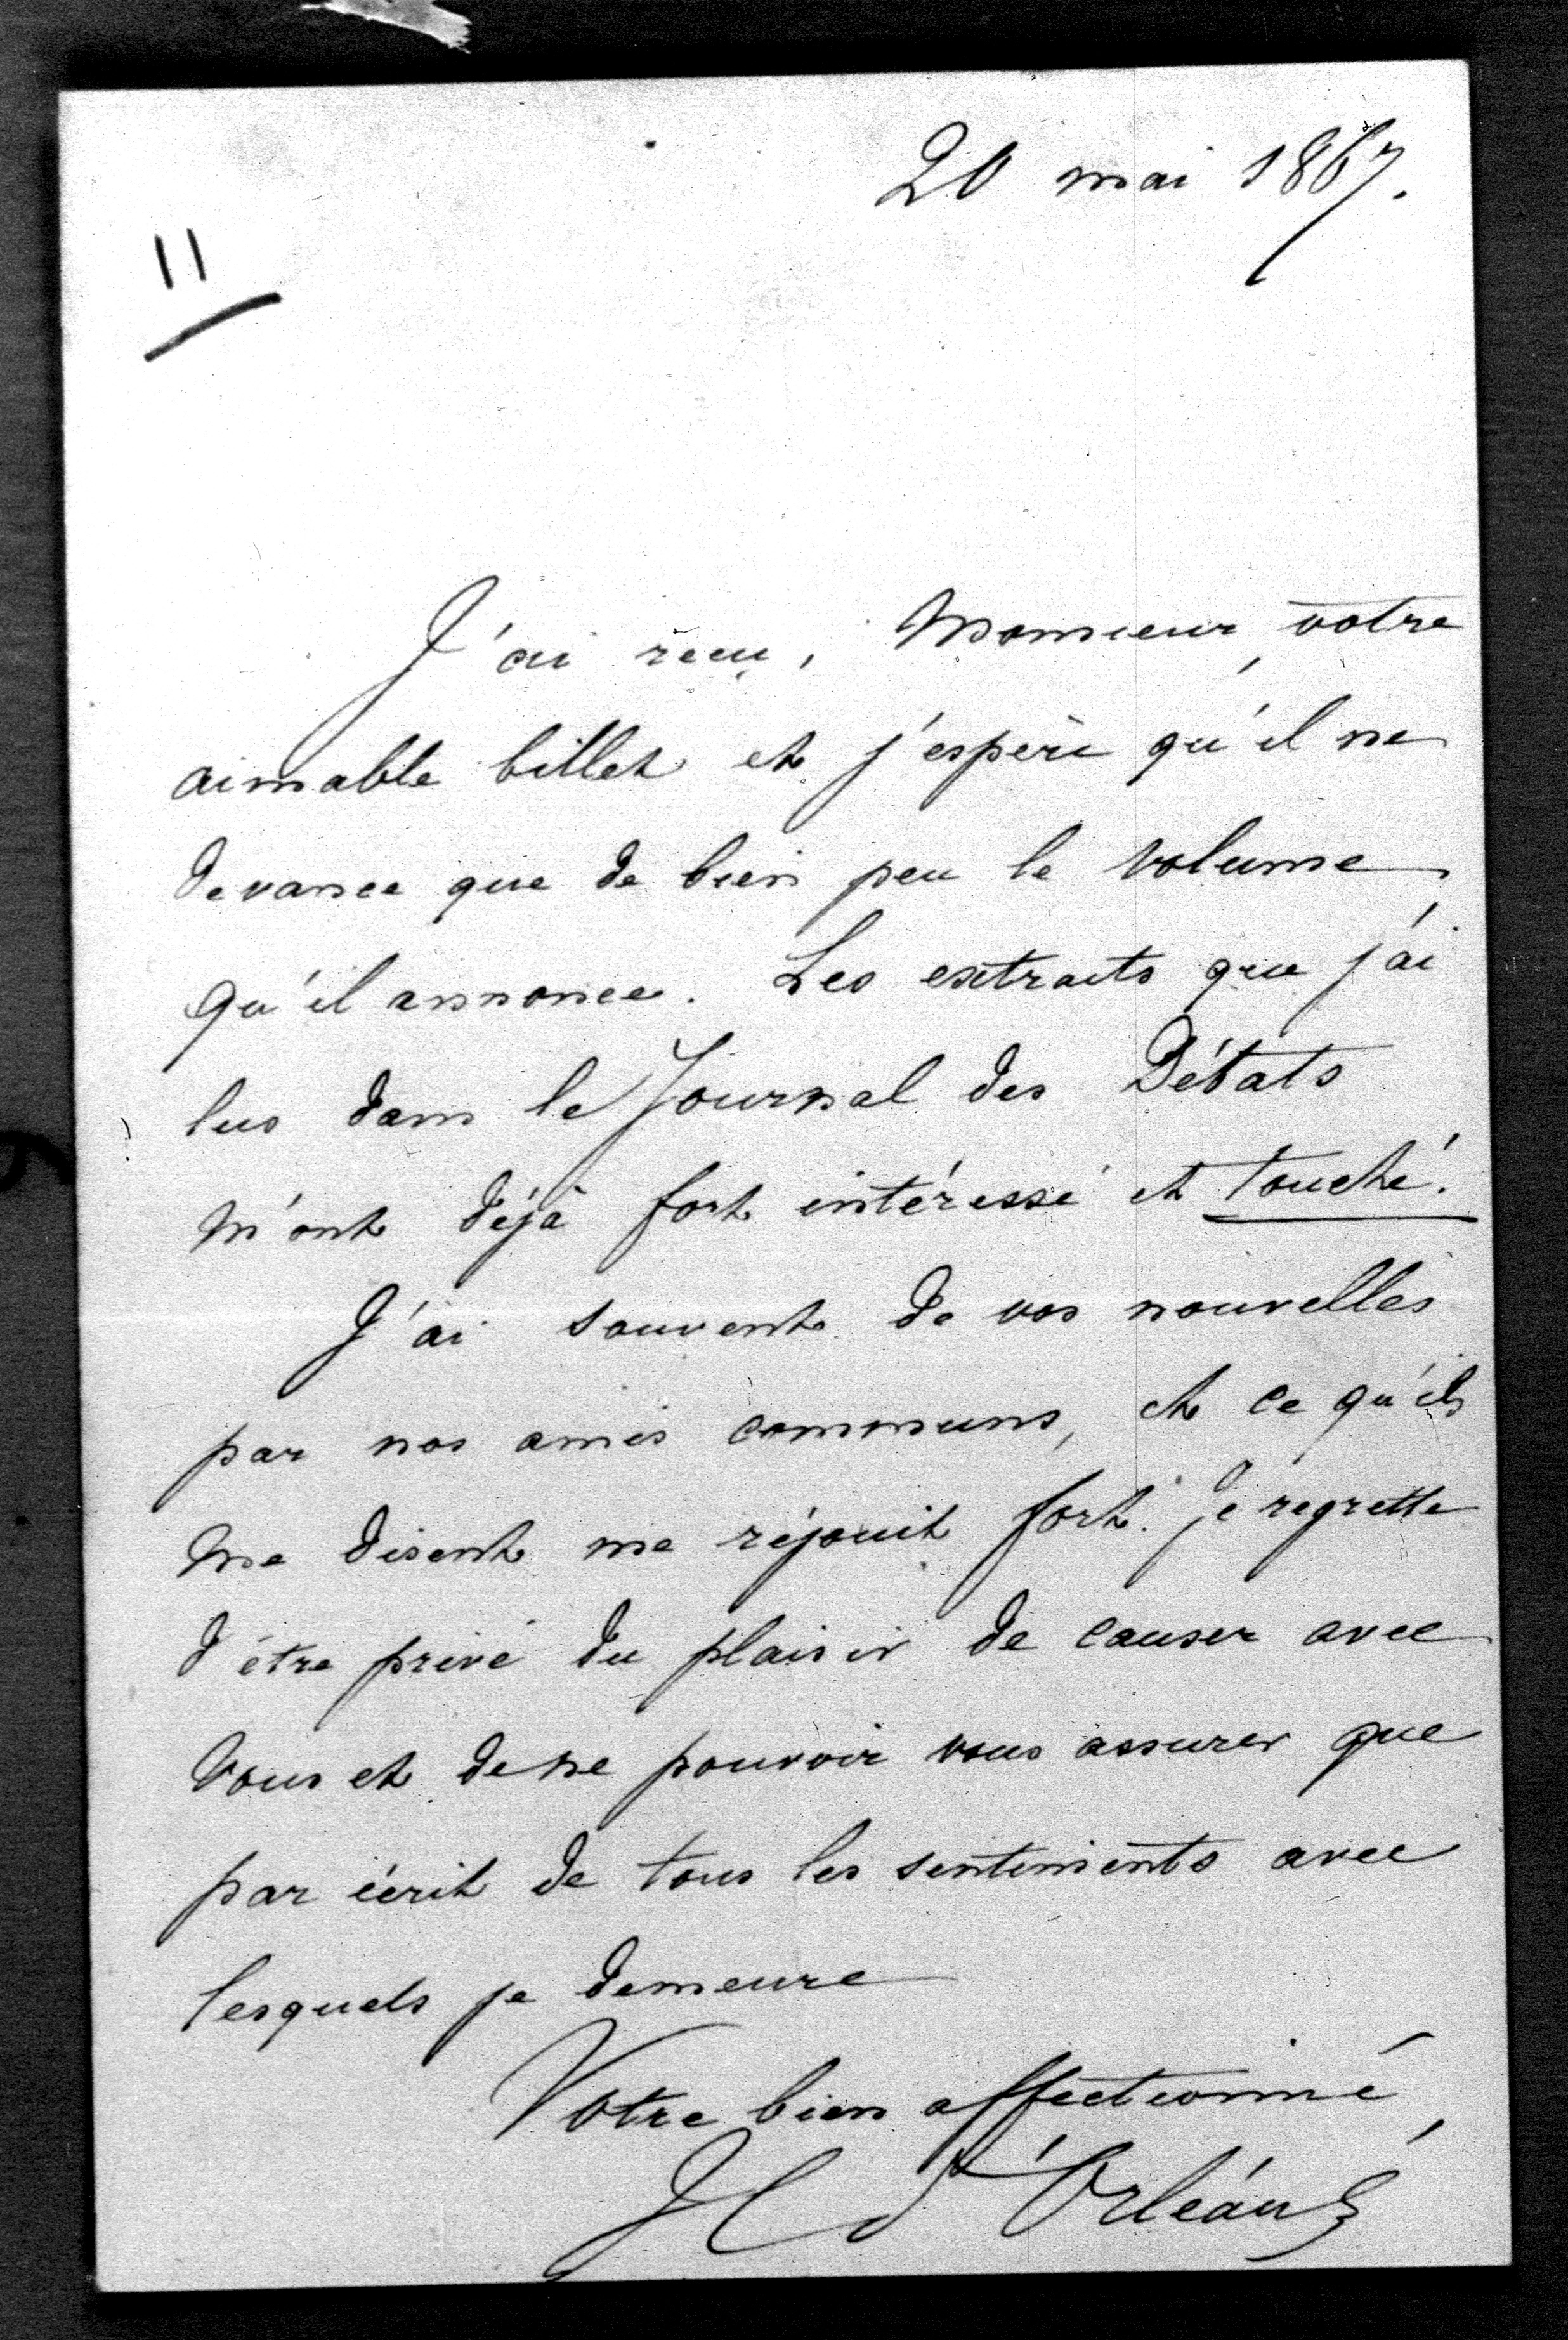 20 mai 1867.
11
J'ai reçu, Monsieur, votre
aimable billet et j'espère qu'il ne
devance que de bien peu le volume
qu'il annonce. Les extraits que j'ai
lus dans le Journal des Débats
m'ont déjà fort intéressé et touché.
J'ai souvent de vos nouvelles
par nos amis communs, et ce qu'ils
me disent me réjouit fort. Je regrette
d'être privé du plaisir de causer avec
vous et de ne pouvoir vous assurer que
par écrit de tous les sentiments avec
lesquels je demeure
Votre bien affectionné,
H d'Orléans